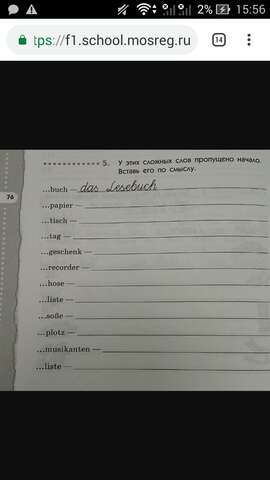 2% 15:56
tps://f1.school.mosreg.ru
14
5. У этих сложных слов пропущено начало.
Вставь его по смыслу.
76
...buch — das Lesebuch
...papier —
...tisch —
...tag —
...geschenk —
...recorder —
...hose —
...liste —
...soße —
...plotz —
...musikanten —
...liste —